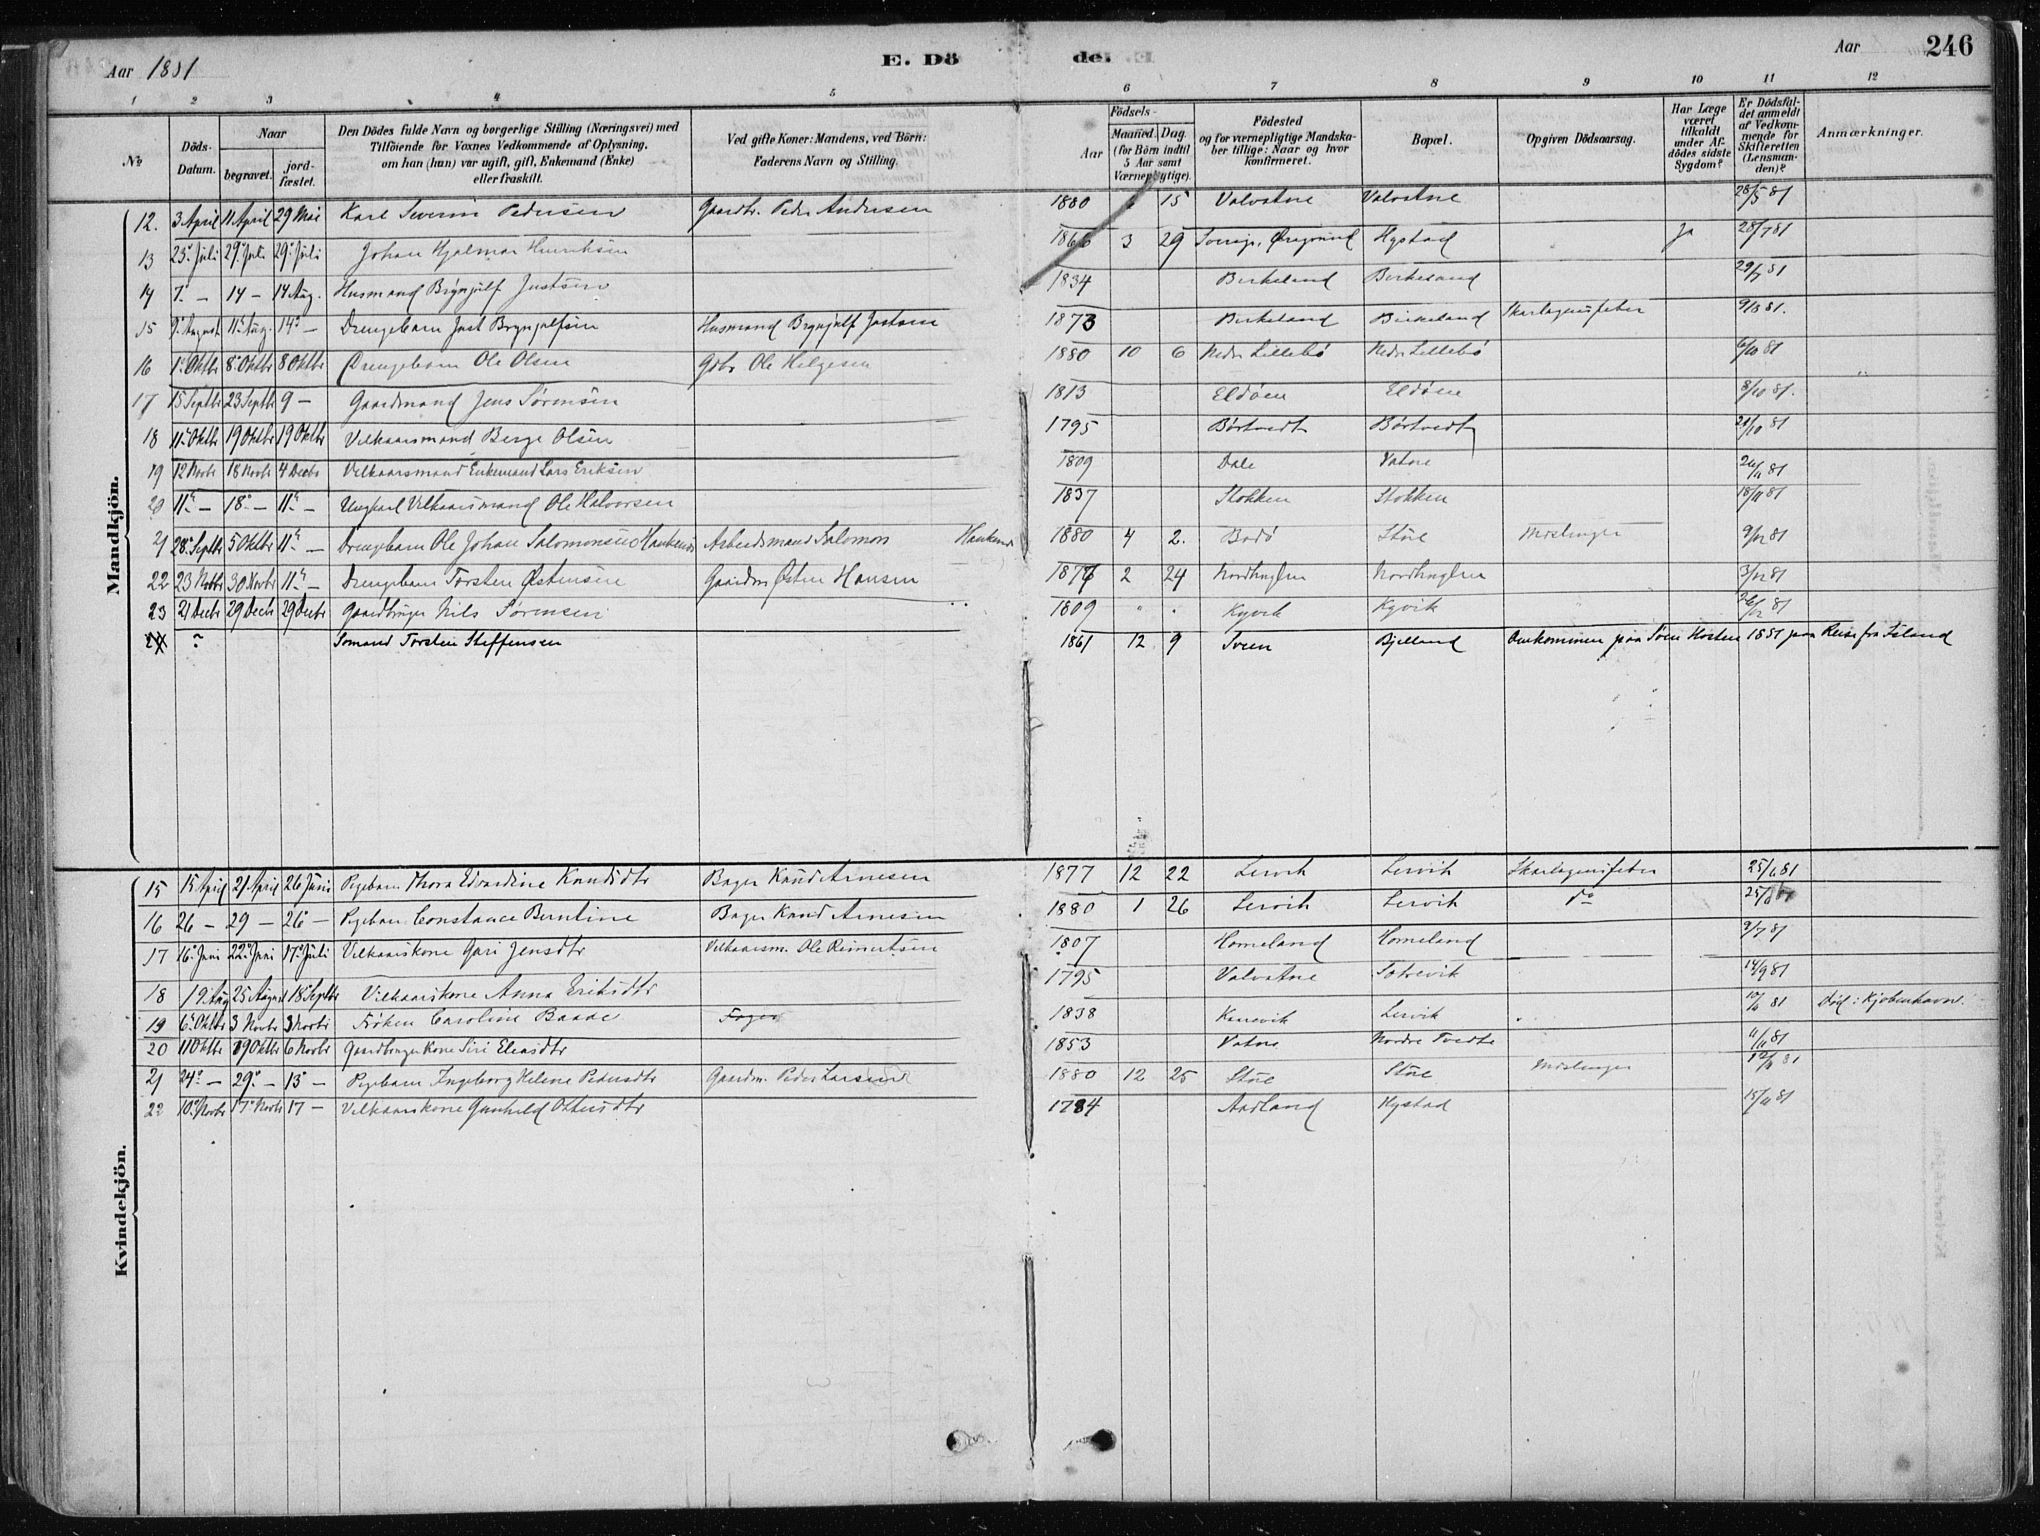 Aar 1881 E. Dö de. Aar 246
1 2 3 4 5 6 7 8 9 10 11 12
No Döds-Datum. Naar begravet. jord-fæstet. Den Dödes fulde Navn og borgerlige Stilling (Næringsvei) med Tilföiende for Voxnes Vedkommende af Oplysning, om han (hun) var ugift, gift, Enkemand (Enke) eller fraskilt. Ved gifte Koner: Mandens, ved Börn: Faderens Navn og Stilling. Födsels- Aar Maaned. Dag. (for Börn indtil 5 Aar samt Værnepligtige). Födested og for værnepligtige Mandskaber tillige: Naar og hvor konfirmeret. Bopæl. Opgiven Dödsaarsag. Har Læge været tilkaldt under Afdödes sidste Sygdom? Er Dödsfaldet anmeldt af Vedkommende for Skifteretten (Lensmanden)? Anmærkninger.
Mandkjön.
12. 3 April 11 April 29 Mai Karl Severin Pedersen Gaardbr. Peder Andersen 1880 15 Valvatne Valvatne 28/5 81
13 23. Juli 29. Juli 29. Juli Johan Hjalmar Henriksen 1866 3 29 Hystad Ja 28/7 81
14 7. - 14 - 14 Aug. Husmand Brynjulf Justsen 1834 Birkeland Birkeland 29/7 81
15 9. August 11. Aug. 14. - Drengebarn Just Brynjulfsen Husmand Brynjulf Justsen 1873 Birkeland Birkeland Skarlagensfeber 9/8 81.
16 1. Oktbr 8. Oktbr 8 Oktbr Drengebarn Ole Olsen Gdbr Ole Helgesen 1880 10 6 Nedre Lillebö Nedre Lillebö 6/10 81
17 15 Septbr 23 Septbr 9 - Gaardmand Jens Sørensen 1813 Eldöen Eldöen 8/10 81.
18 11. Oktbr 19 Oktbr 19 Oktbr Vilkaarsmand Berge Olsen 1795 Börtvedt Börtvedt 21/10 81
19 12 Novbr 18 Novbr 4 Decbr Vilkaarsmand Enkemand Lars Eriksen 1809 Dale Vatne 26/11 81
20 11. - 18. - 11. - Ungkarl Vilkaarsmand Ole Halvorsen 1837 Stokken Stokken 18/11 81
21 28. Septbr 5 Oktbr 11. - Drengebarn Ole Johan Salomonsen Haukenes Arbeidsmand Salomon Haukenes 1880 4 2. Bodö Støle Meslinger 9/12 81
22 23 Novbr 30 Novbr 11. - Drengebarn Torsten Østensen Gaardm. Østen Hansen 1876 2 24 Nordhuglen Nordhuglen 3/12 81
23 21 Decbr 29 Decbr 29 Decbr Gaardbruger Nils Sørensen 1809 " " Kyvik Kyvik 26/12 81
24. ? Sømand Torsten Steffensen 1861 12 9 Sveen Bjelland Omkommen paa Søen Høsten 1881 paa Reise fra Island
Kvindekjön.
15 15 April 21 April 26 Juni Pigebarn Thora Edvardine Knudsdtr Bager Knud Arnesen 1877 12 22 Lervik Lervik Skarlagensfeber 25/6 81
16 26 - 29 - 26. - Pigebarn Constance Berntine Bager Knud Arnesen 1880 1 26 Lervik Lervik do 25/6 81
17 16. Juni 22. Juni 17. Juli Vilkaarskone Guri Jensdtr Vilkaarsm. Ole Reinertsen 1807 Homeland Homeland 2/7 81
18 19. Aug 25 August 18 Septbr Vilkaarskone Anna Eriksdtr 1795 Valvatne Totrevik 14/9 81
19 6. Oktbr 3 Novbr 3 Novbr Frøken Caroline Baade 1838 Kaarevik Lervik 81 Död i Kjøbenhavn.
20 11 Oktbr 19 Oktbr 6 Novbr Gaardbrugerkone Siri Eliasdtr 1853 Vatne Nordre Tvedte 11/11 81
21 24. - 29. - 13. - Pigebarn Ingeborg Helene Pedersdtr Gaardm. Peder Larsen 1880 12 25 Støle Støle Meslinger 12/11 81
22 10. Novbr 17. Novbr 17 - Vilkaarskone Gunhild Ottersdtr 1784 Aadland Hystad 15/11 81